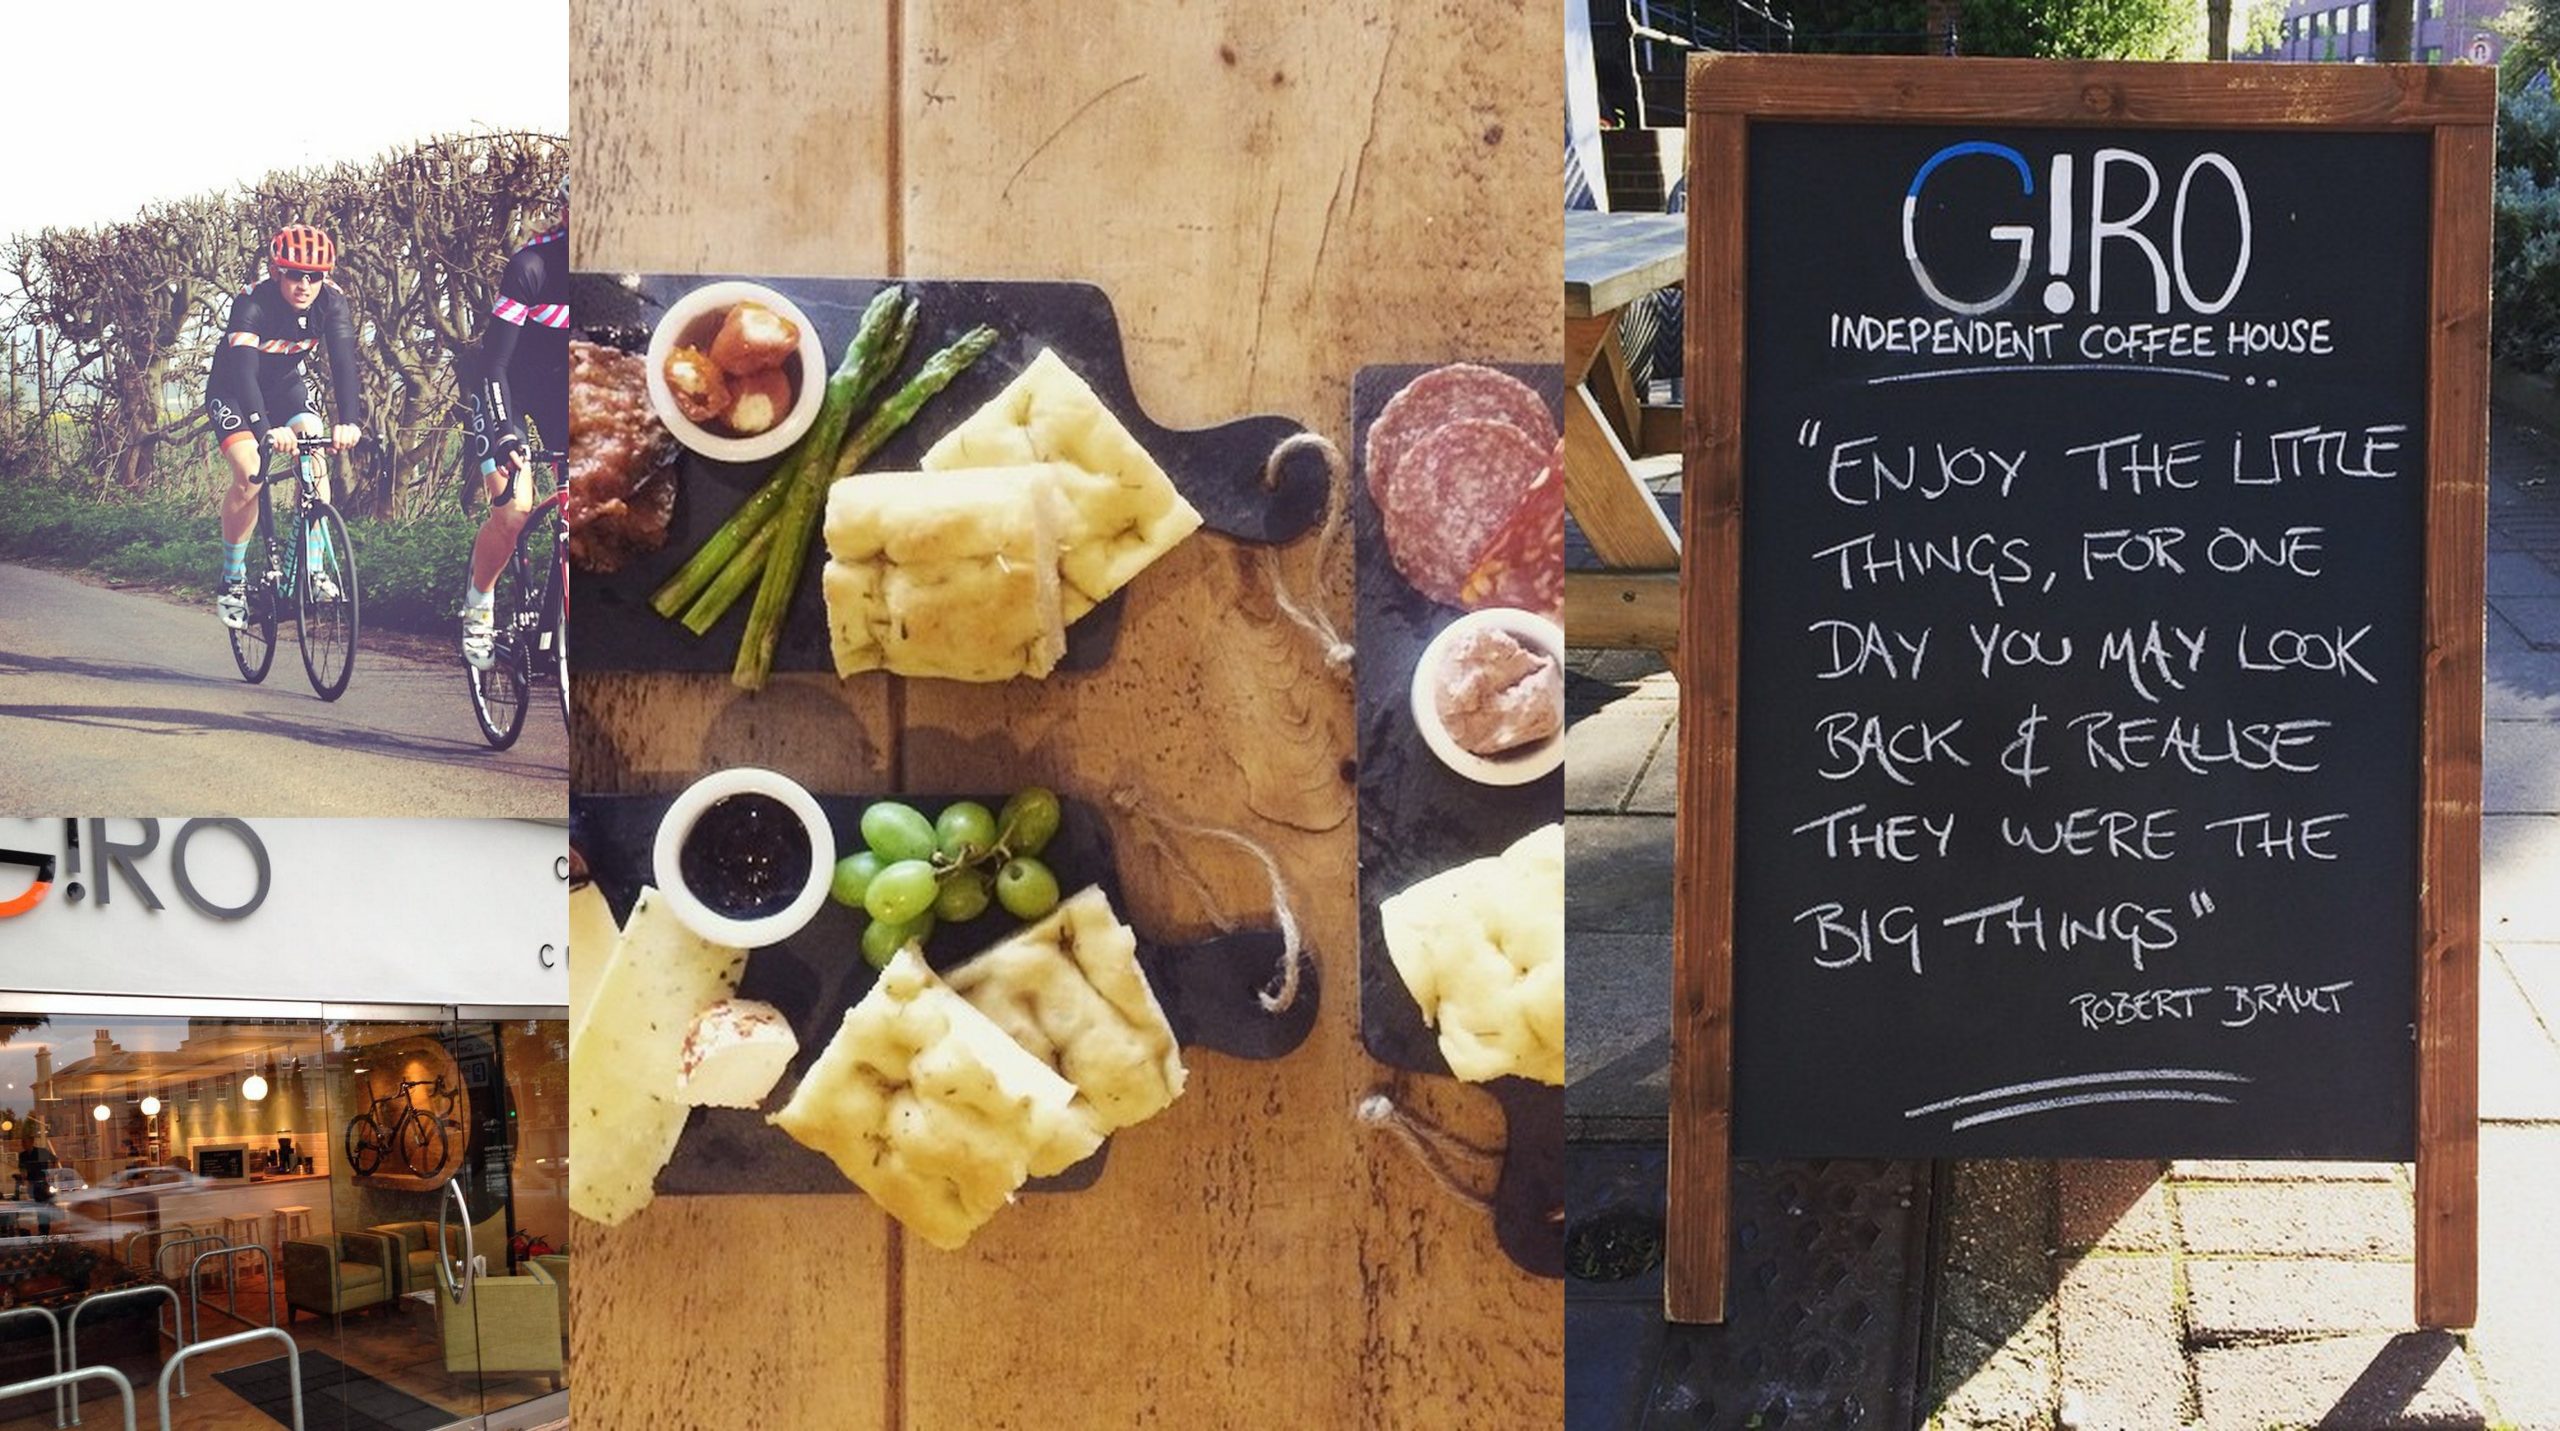 G!RO
G!RO
G!RO
C
C
G!RO
INDEPENDENT COFFEE HOUSE
"ENJOY THE LITTLE
THINGS, FOR ONE
DAY YOU MAY LOOK
BACK & REALISE
THEY WERE THE
BIG THINGS"
ROBERT BRAULT